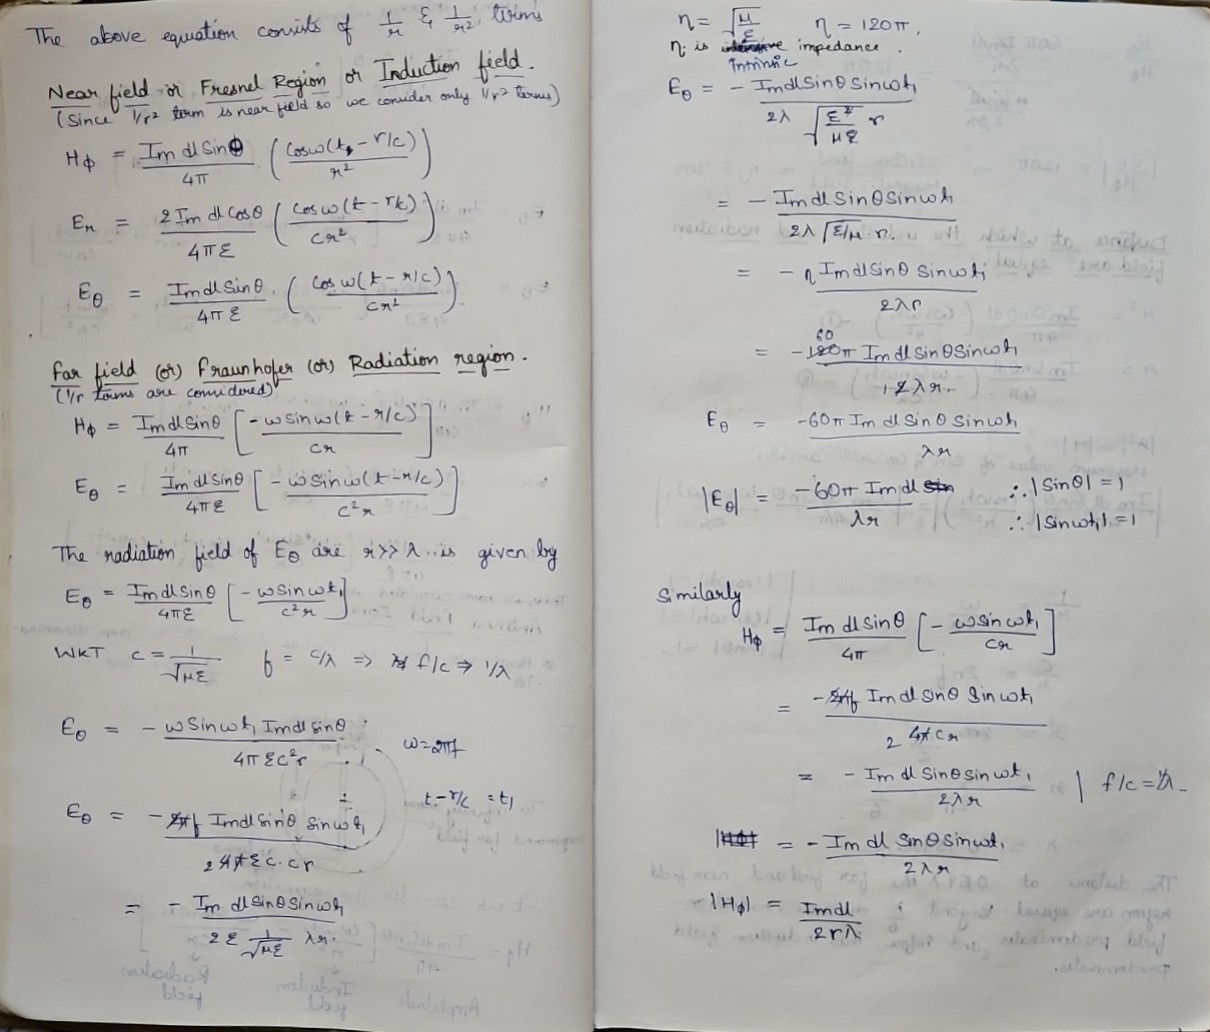 The above equation consists of 1/r & 1/r², terms
Near field or Fresnel Region or Induction field.
(Since 1/r² term is near field so we consider only 1/r² terms)
Hϕ = Im dl Sinθ / 4π (Cosω(t - r/c) / r²)
Er = 2 Im dl cosθ / 4πε (Cosω(t - r/c) / cr²)
Eθ = Im dl Sinθ / 4πε . (cos ω(t - r/c) / cr²)
far field (or) Fraunhofer (or) Radiation region.
(1/r terms are considered)
Hϕ = Im dl Sinθ / 4π [-ω sin ω(t - r/c) / cr]
Eθ = Im dl sinθ / 4πε [-ω Sin ω(t - r/c) / c²r]
The radiation field of Eθ are r>>λ is given by
Eθ = Im dl sinθ / 4πε [-ω Sin ωt₁ / c²r]
WKT c = 1/√με f = c/λ => f/c => 1/λ
Eθ = - ω Sin ωt₁ Im dl sinθ / 4π εc²r
ω = 2πf
t - r/c = t₁
Eθ = - 2πf Im dl sinθ sin ωt₁ / 2 4π εc.cr
= - Im dl sinθ sin ωt₁ / 2ε 1/√με λr.
η = √μ/ε η = 120π.
η is intrinsic impedance.
Eθ = - Im dl Sinθ Sin ωt₁ / 2λ √ε²/με r
= - Im dl Sinθ Sin ωt₁ / 2λ √ε/μ . r.
= - η Im dl Sinθ Sin ωt₁ / 2λr
= - 120π 60 Im dl sinθ Sin ωt₁ / 1 2 λr.
Eθ = -60π Im dl Sinθ Sin ωt₁ / λr
|Eθ| = -60π Im dl sin / λr ∴ |Sinθ| = 1
∴ |Sin ωt₁| = 1
Similarly
Hϕ = Im dl sinθ / 4π [- ω sin ωt₁ / cr]
= - 2πf Im dl sinθ Sin ωt₁ / 2 4π cr
= - Im dl sinθ sin ωt₁ / 2λr | f/c = 1/λ
|Hϕ| = - Im dl Sinθ Sin ωt₁ / 2λr
|Hϕ| = Im dl / 2rλ